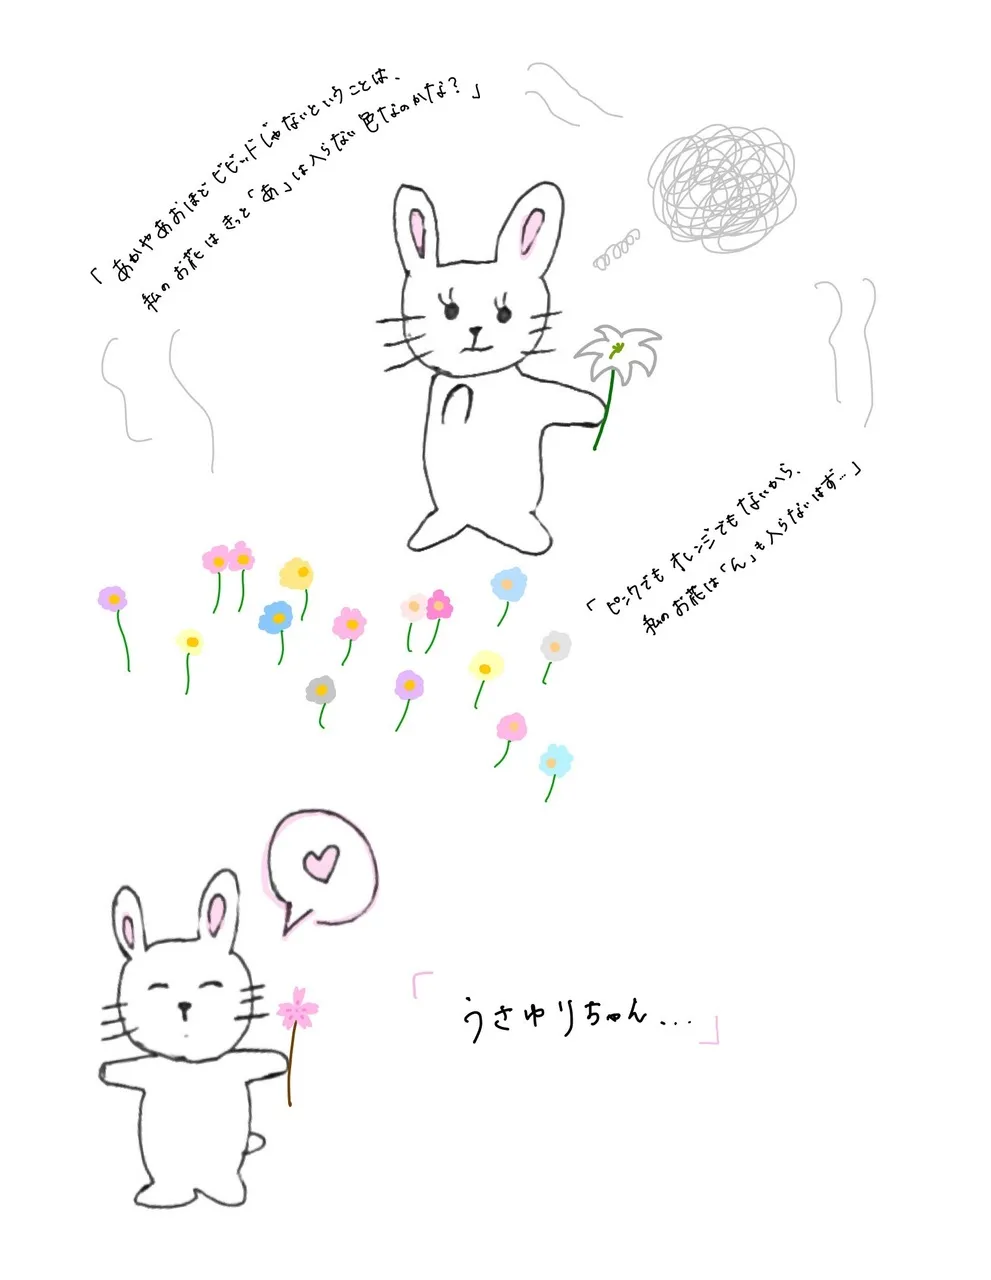 「あかやあおほどビビッドじゃないということは、
私のお花はきっと「あ」は入らない色なのかな？」
「ピンクでもオレンジでもないから、
私のお花は「ん」も入らないはず…」
「うさゆりちゃん…」